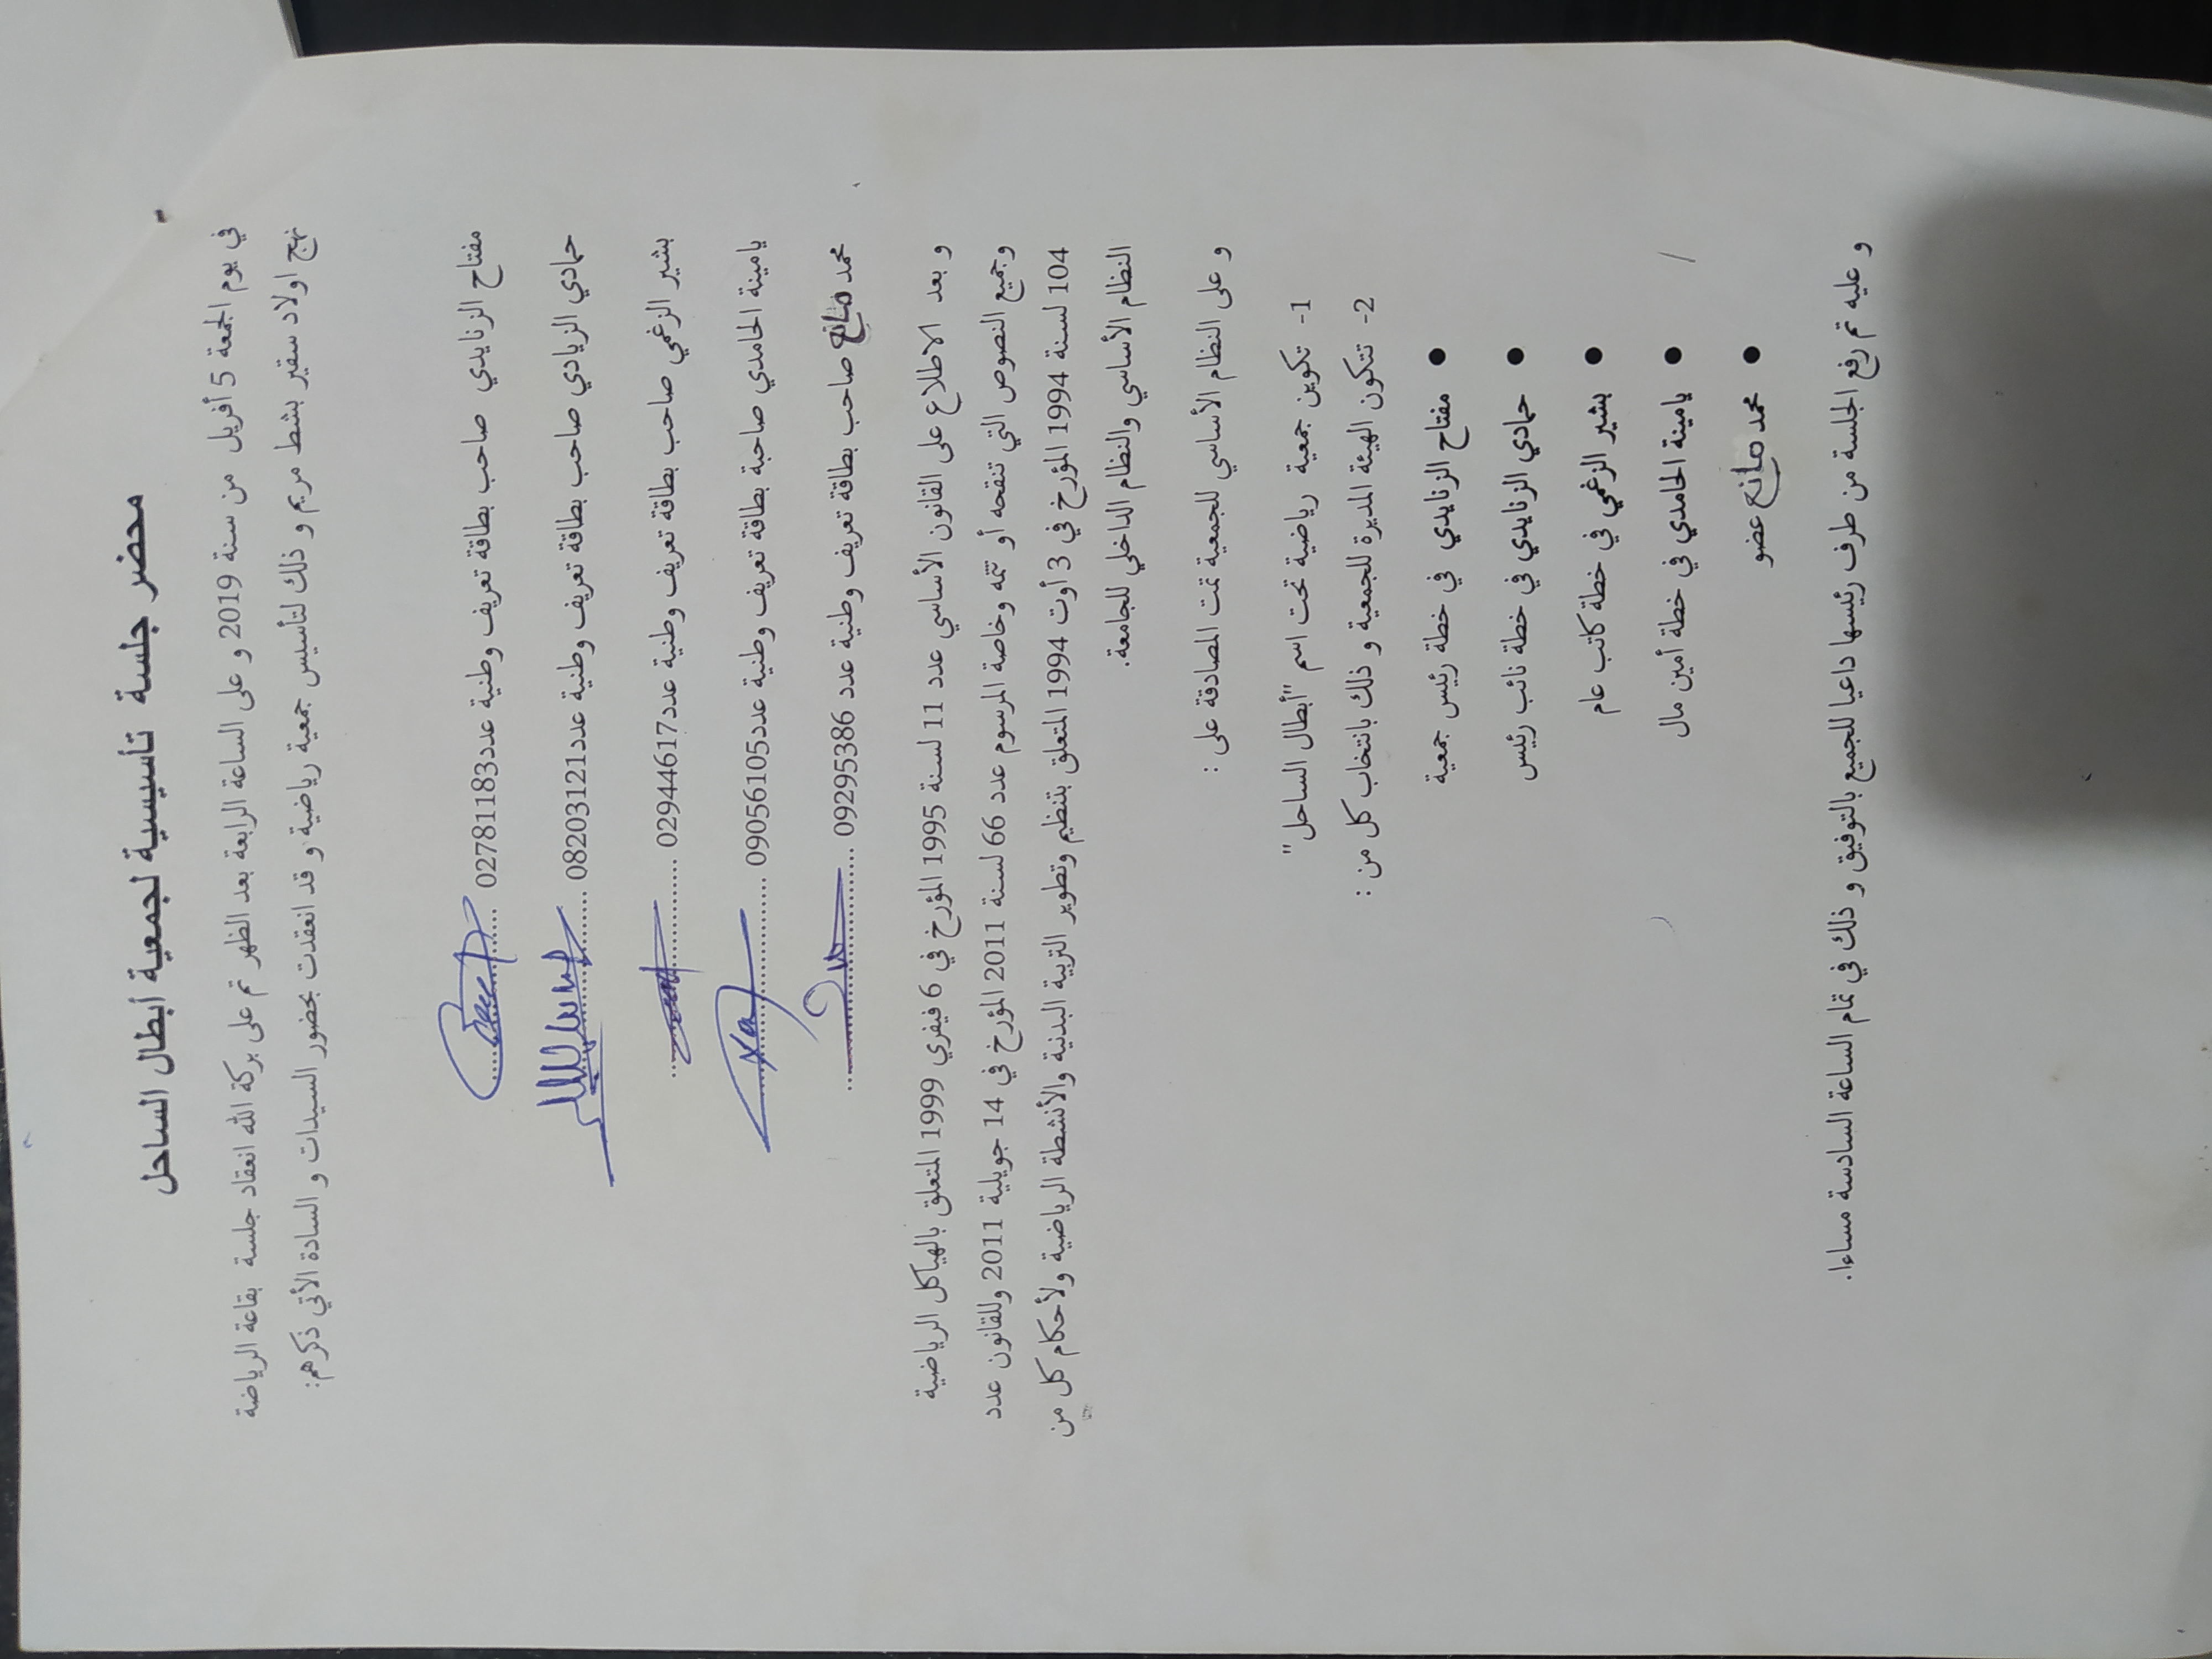 محضر جلسة تأسيسية لجمعية أبطال الساحل
في يوم الجمعة 5 أفريل من سنة 2019 و على الساعة الرابعة بعد الظهر تم على بركة الله انعقاد جلسة بقاعة الرياضة
نهج اولاد سقير بشط مريم و ذلك لتأسيس جمعية رياضية و قد انعقدت بحضور السيدات و السادة الأتي ذكرهم:
مفتاح الزنايدي صاحب بطاقة تعريف وطنية عدد02781183
حمادي الزيادي صاحب بطاقة تعريف وطنية عدد08203121
بشير الزغمي صاحب بطاقة تعريف وطنية عدد02944617
يامينة الحامدي صاحبة بطاقة تعريف وطنية عدد09056105
محمد مانع صاحب بطاقة تعريف وطنية عدد 09295386
و بعد الاطلاع على القانون الأساسي عدد 11 لسنة 1995 المؤرخ في 6 فيفري 1999 المتعلق بالهياكل الرياضية
وجميع النصوص التي تنقحه أو تتمه وخاصة المرسوم عدد 66 لسنة 2011 المؤرخ في 14 جويلية 2011 وللقانون عدد
104 لسنة 1994 المؤرخ في 3 أوت 1994 المتعلق بتنظيم وتطوير التربية البدنية والأنشطة الرياضية ولأحكام كل من
النظام الأساسي والنظام الداخلي للجامعة.
و على النظام الأساسي للجمعية تمت المصادقة على :
1- تكوين جمعية رياضية تحت اسم "أبطال الساحل"
2- تتكون الهيئة المديرة للجمعية و ذلك بانتخاب كل من :
● مفتاح الزنايدي في خطة رئيس جمعية
● حمادي الزنايدي في خطة نائب رئيس
● بشير الزغمي في خطة كاتب عام
● يامينة الحامدي في خطة أمين مال
● محمد مانع عضو
و عليه تم رفع الجلسة من طرف رئيسها داعيا للجميع بالتوفيق و ذلك في تمام الساعة السادسة مساءا.